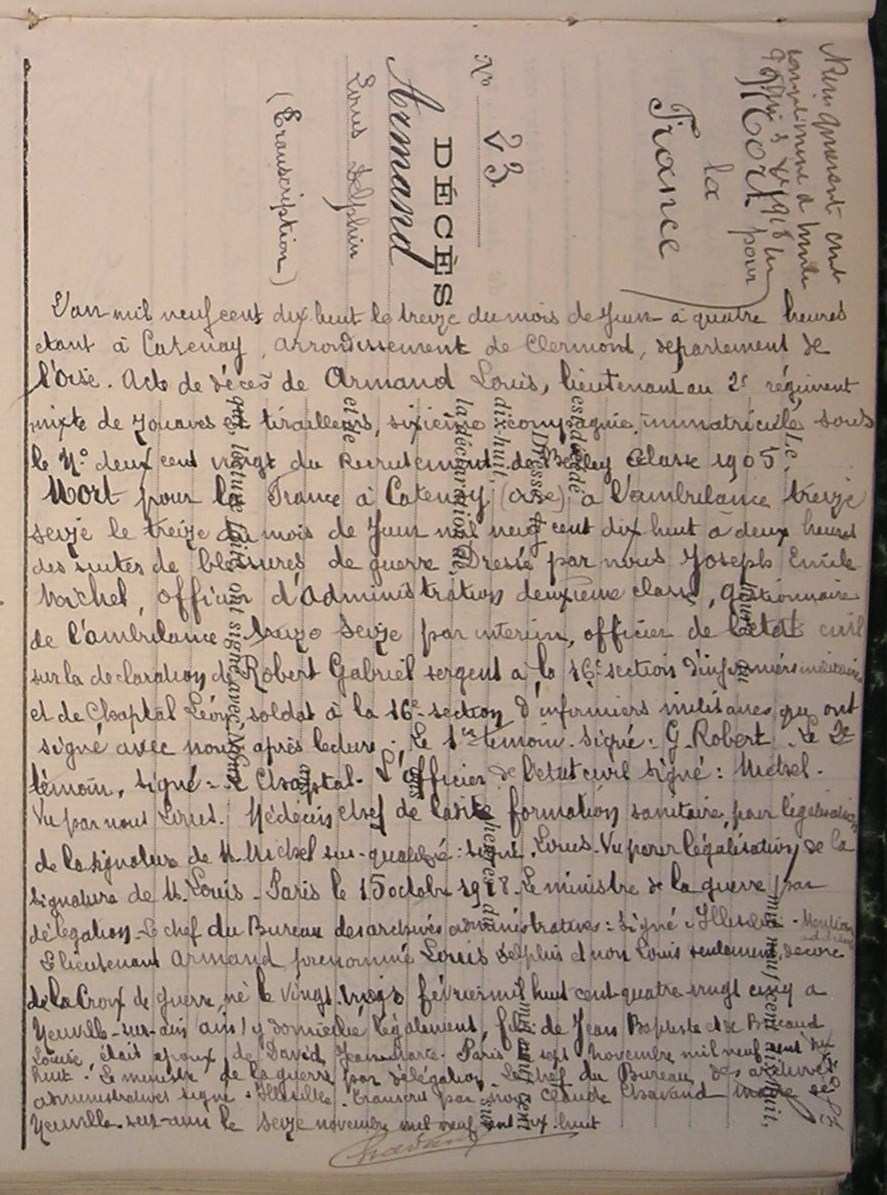 Mort pour
la
France
N° 23
DÉCÈS
Armand
Louis Delphin
(Transcription)
L'an mil neuf cent dix huit le treize du mois de Juin à quatre heures
étant à Catenay, arrondissement de Clermont, département de
l'Oise. Acte de décès de Armand Louis, lieutenant au 2e régiment
mixte de zouaves et tirailleurs, sixième compagnie, immatriculé sous
le N° deux cent vingt du Recrutement de Belley Classe 1905
Mort pour la France à Catenay (Oise) à l'ambulance treize
seize le treize du mois de Juin mil neuf cent dix huit à deux heures
des suites de blessures de guerre. Dressé par nous Joseph Emile
Michel, officier d'administration deuxième classe, gestionnaire
de l'ambulance treize seize par interim, officier de l'état civil
sur la déclaration de Robert Gabriel sergent à la 16e section d'infirmiers militaires
et de Chaptal Léon, soldat à la 16e section d'infirmiers militaires qui ont
signé avec nous après lecture. Le 1er témoin. signé : G. Robert. Le 2e
témoin, signé : L. Chaptal. L'officier de l'état civil signé : Michel.
Vu par nous Médecin chef de la dite formation sanitaire, pour légalisation
de la signature de M. Michel sus-qualifié : signé, Vu pour légalisation de la
signature de M. Paris le 15 octobre 1918. Le ministre de la guerre par
délégation. Le chef du Bureau des archives administratives : signé :
lieutenant Armand, prénommé Louis Delphin et non Louis seulement, décoré
de la Croix de guerre, né le vingt trois février mil huit cent quatre vingt cinq à
Neuville-sur-ain (ain) y domicilié légalement, fils de Jean Baptiste et de
Louise, était époux de David, Jeanne Marie. Paris le sept novembre mil neuf cent dix
huit. Le ministre de la guerre par délégation. Le chef du Bureau des archives
administratives signé : Transcrit par nous Claude Chavand maire de
Neuville-sur-ain le seize novembre mil neuf cent dix huit
Chavand